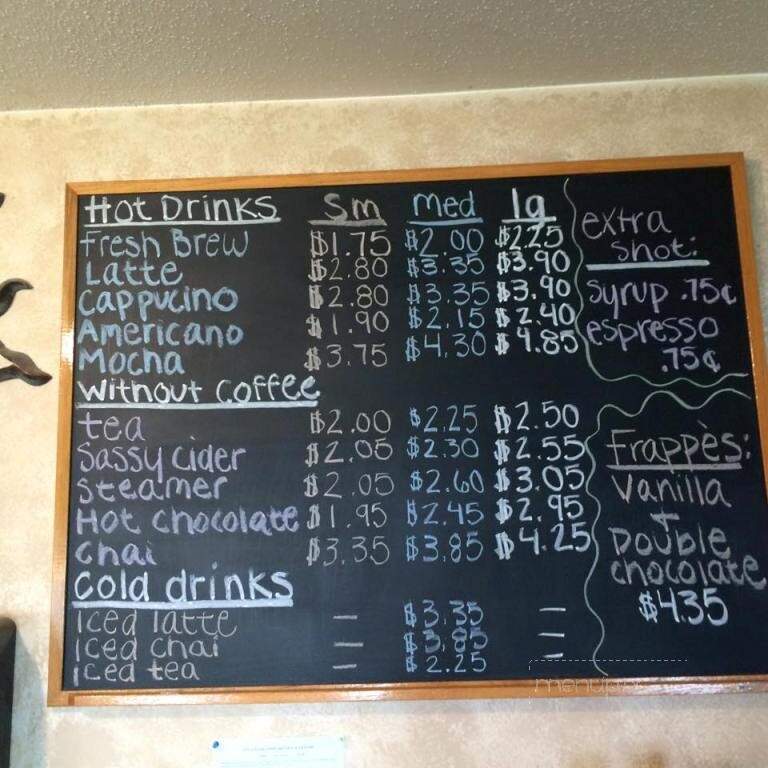 Hot Drinks Sm Med lg
Fresh Brew $1.75 $2.00 $2.25
Latte $2.80 $3.35 $3.90
Cappucino $2.80 $3.35 $3.90
Americano $1.90 $2.15 $2.40
Mocha $3.75 $4.30 $4.85
Without Coffee
tea $2.00 $2.25 $2.50
Sassy Cider $2.05 $2.30 $2.55
Steamer $2.05 $2.60 $3.05
Hot chocolate $1.95 $2.45 $2.95
Chai $3.35 $3.85 $4.25
Cold drinks
Iced latte — $3.35 —
Iced chai — $3.85 —
Iced tea — $2.25 —
extra
shot:
syrup .75¢
espresso
.75¢
Frappès:
Vanilla
+
Double
chocolate
$4.35